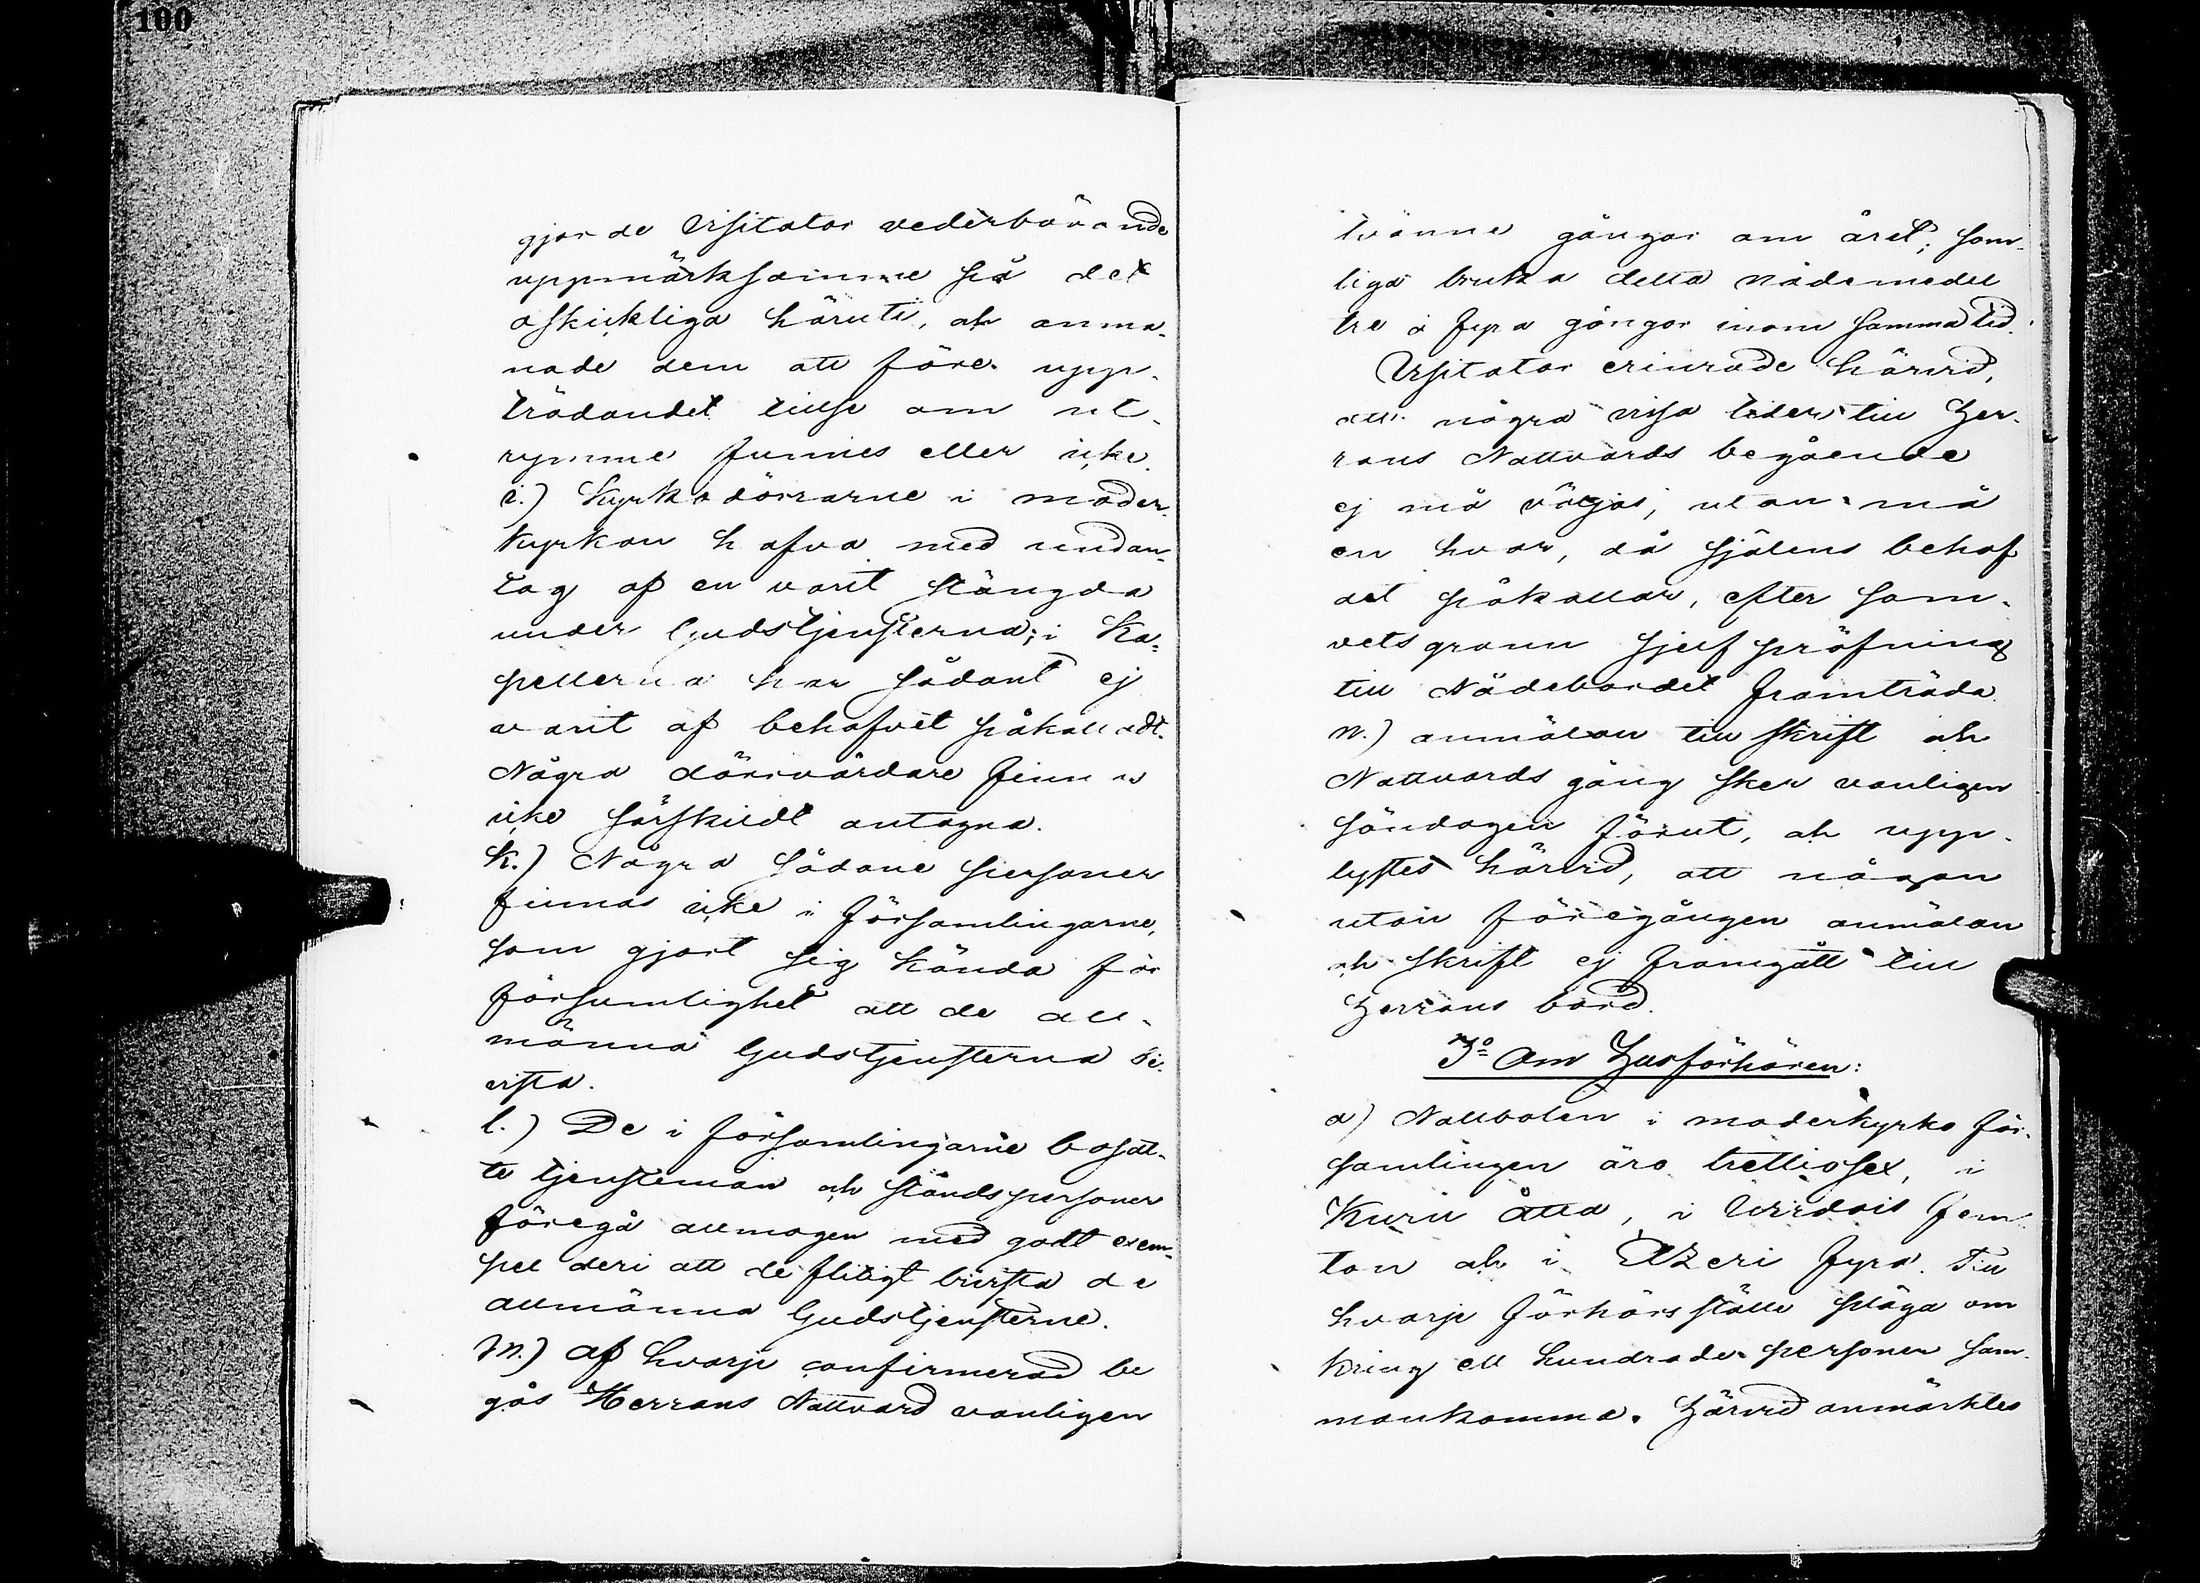 100
gjorde Visitator vederbörande
uppmärksamme på det
oskickliga häruti, och anma-
nade dem att före upp-
trädandet tillse om ut-
rymme funnes eller icke.
i.) Kyrkodörrarne i moder-
kyrkan hafva med undan-
tag af en varit stängda
under Gudstjensterna; i Ka-
pellerna har sådant ej
varit af behofvet påkalladt.
Några dörrvärdare finnas
icke särskildt antagna.
K.) Några sådane personer
finnas icke i församlingarne,
som gjort sig kända för
försumlighet att de all-
männa Gudstjensterna bi-
vista.
l.) De i församlingarne bosat-
te tjenstemän och ståndspersoner
föregå allmogen med godt exem-
pel deri att de flitigt bivista de
allmänna Gudstjensterne.
M.) Af hvarje confirmerad be
gås Herrans Nattvard vanligen
tvänne gångor om året; som-
liga bruka detta nådemedel
tre à fyra gångor inom samma tid.
Visitator erinrade härvid,
att några vissa tider till Her-
rans Nattvards begående
ej må väljas, utan må
en hvar, då själens behof
det påkallar, efter sam-
vetsgrann sjelfpröfning
till Nådebordet framträda.
n.) anmälan till skrift och
Nattvards gång sker vanligen
söndagen förut, och upp-
lystes härvid, att någon
utan föregången anmälan
och skrift ej framgått till
Herrans bord.
3o Om Husförhören:
a) Nattbolen i moderkyrko för-
samlingen äro trettiosex, i
Kuru åtta, i Wirdois fem-
ton och i Atzeri fyra. Till
hvarje förhörsställe pläga om
kring ett hundrade personer sam-
mankomma. Härvid anmärktes